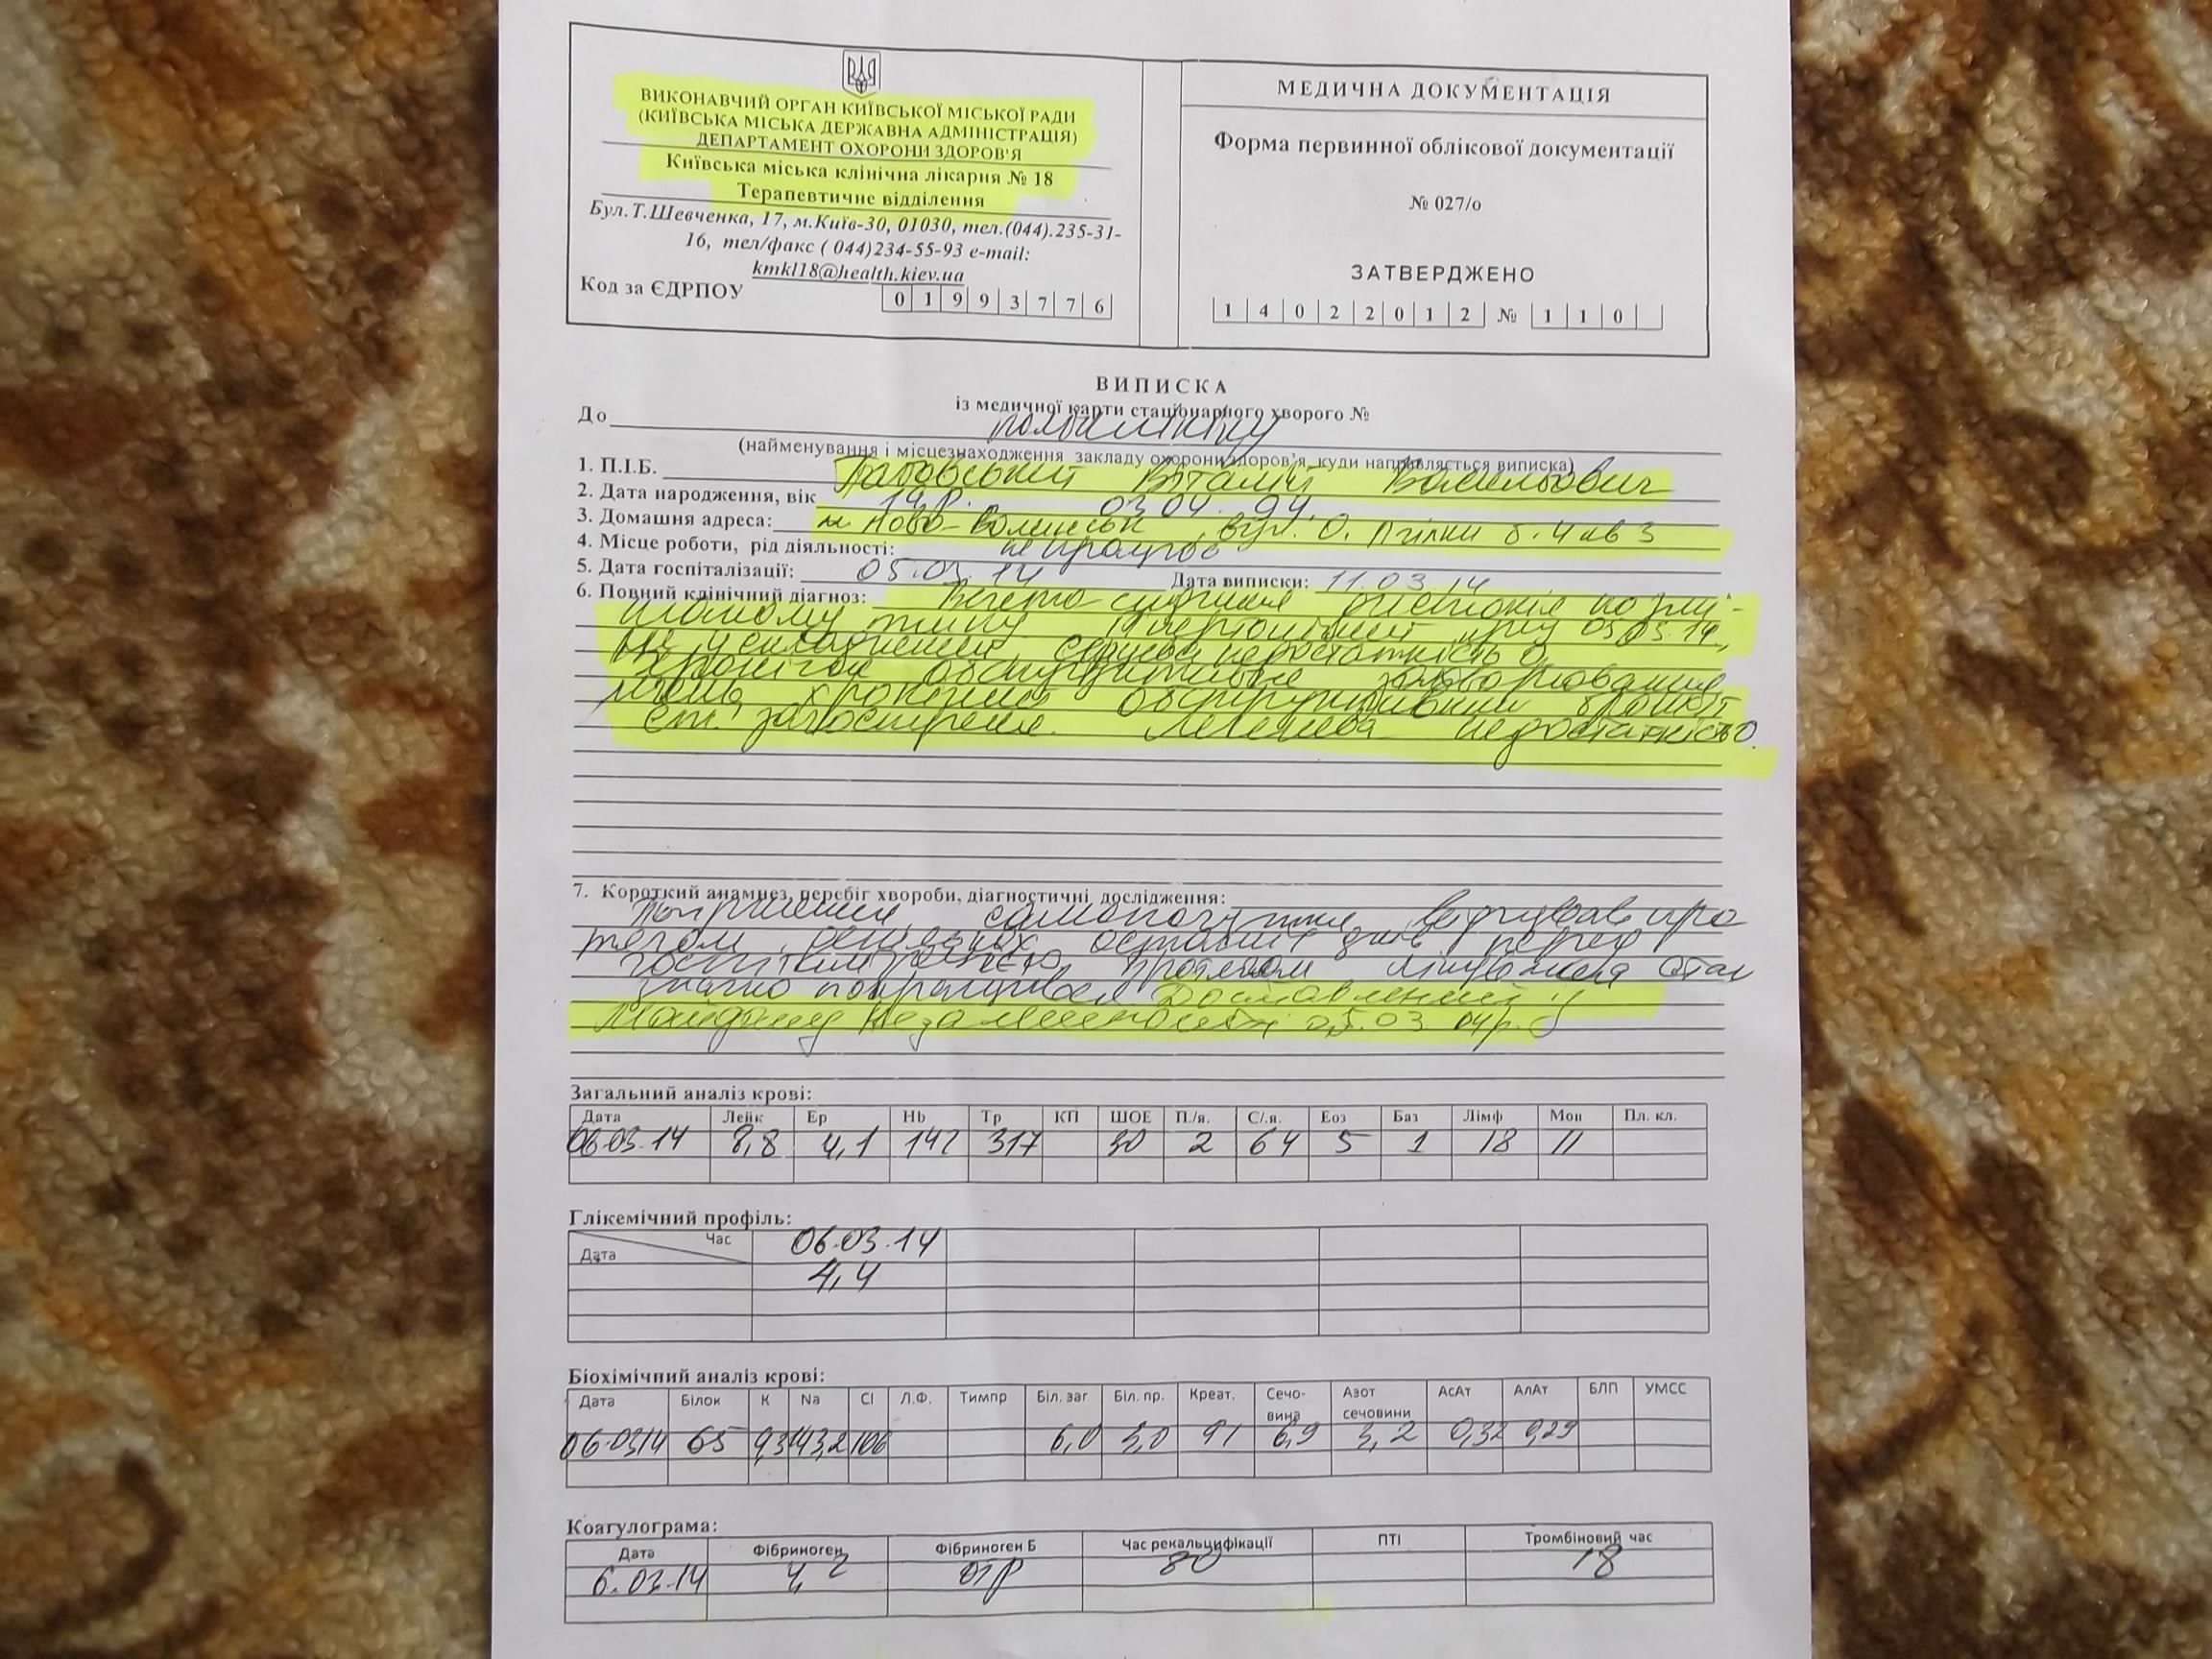 ВИКОНАВЧИЙ ОРГАН КИЇВСЬКОЇ МІСЬКОЇ РАДИ
(КИЇВСЬКА МІСЬКА ДЕРЖАВНА АДМІНІСТРАЦІЯ)
ДЕПАРТАМЕНТ ОХОРОНИ ЗДОРОВ'Я
Київська міська клінічна лікарня № 18
Терапевтичне відділення
Бул.Т.Шевченка, 17, м.Київ-30, 01030, тел.(044).235-31-
16, тел/факс ( 044)234-55-93 e-mail:
kmkl18@health.kiev.ua
Код за ЄДРПОУ 0 1 9 9 3 7 7 6
МЕДИЧНА ДОКУМЕНТАЦІЯ
Форма первинної облікової документації
№ 027/о
ЗАТВЕРДЖЕНО
1 4 0 2 2 0 1 2 № 1 1 0
ВИПИСКА
із медичної карти стаціонарного хворого №
До поліклініку
(найменування і місцезнаходження закладу охорони здоров'я, куди направляється виписка)
1. П.І.Б. Віталій Васильович
2. Дата народження, вік 19 р. 03 04. 94.
3. Домашня адреса: м. Ново-Волинськ, вул. О. Пчілки б. 4 кв 3
4. Місце роботи, рід діяльності: не працює
5. Дата госпіталізації: 05.03.14 Дата виписки: 11.03.14
6. Повний клінічний діагноз: Вегето-судинна дистонія по змі-
шаному типу 05.03.14,
серцева недостатність 0,
хронічне обструктивне захворювання
легень, хронічний обструктивний бронхіт
ст. загострення. Легенева недостатність 0.
7. Короткий анамнез, перебіг хвороби, діагностичні дослідження:
Погіршення самопочуття відчував про
тягом декількох останніх днів перед
госпіталізацією, протягом лікування стан
значно покращився Доставлений з
Майдану Незалежності 05.03
Загальний аналіз крові:
Дата Лейк Ер Hb Тр КП ШОЕ П./я. С/.я. Еоз Баз Лімф Мон Пл. кл.
06.03.14 8,8 4,1 142 317 30 2 64 5 1 18 11
Глікемічний профіль:
Час
Дата
06.03.14
4,4
Біохімічний аналіз крові:
Дата Білок К Na Cl Л.Ф. Тимпр Біл. заг Біл. пр. Креат. Сечо-вина Азот сечовини АсАт АлАт БЛП УМСС
06.03.14 65 143,2 106 6,0 3,0 91 6,9 3,2 0,32 0,29
Коагулограма:
Дата Фібриноген Фібриноген Б Час рекальцифікації ПТІ Тромбіновий час
6.03.14 4,2 отр 80 18